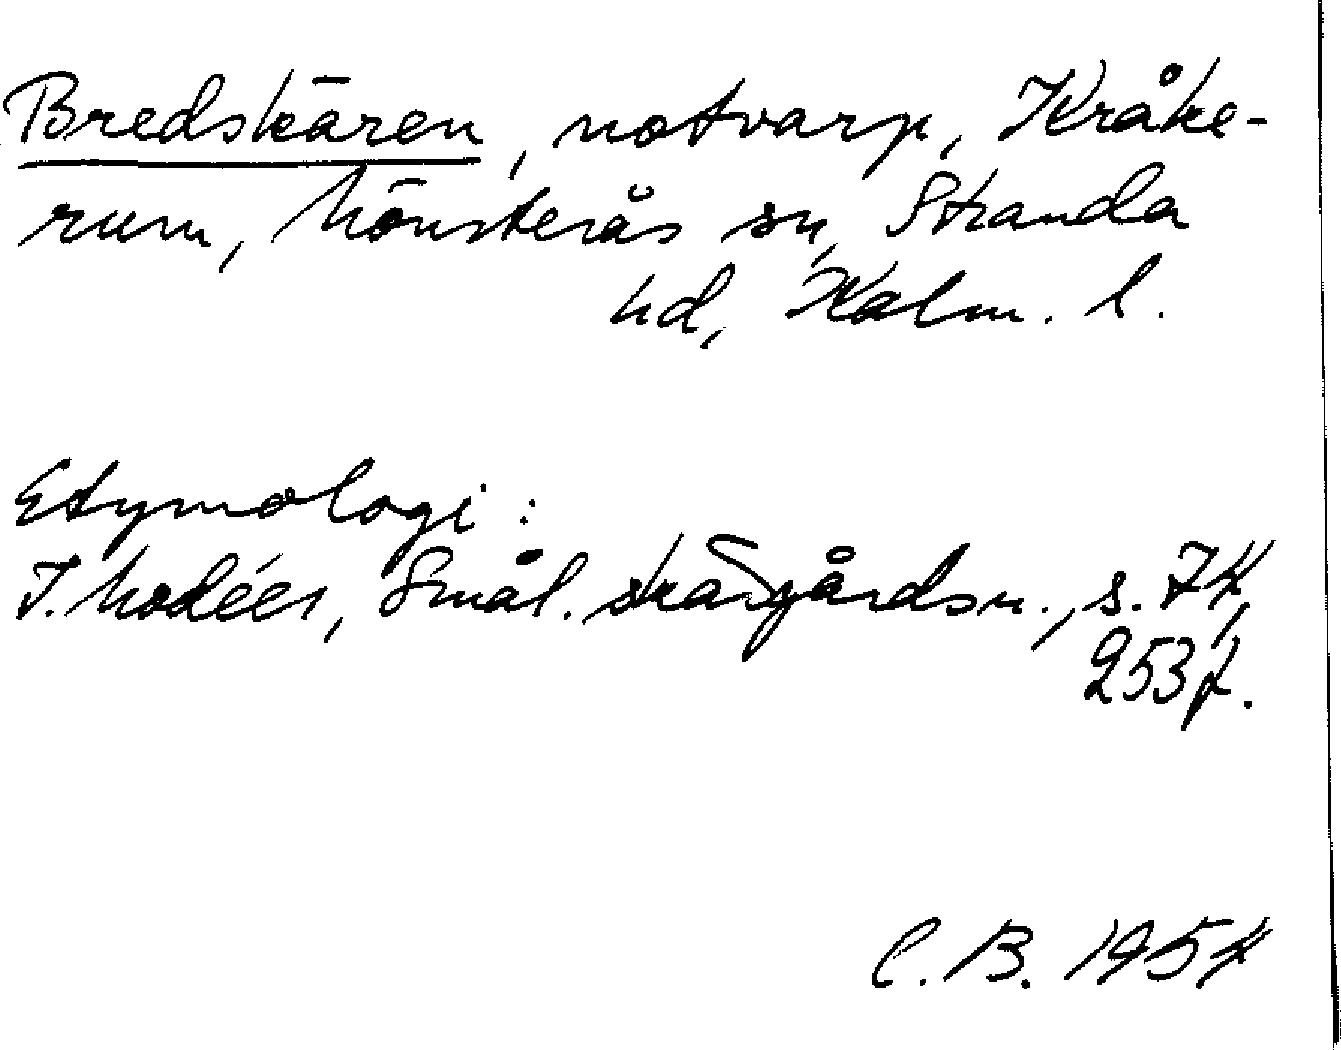 Bredskären, notvarp, Kråke-
rum, Mönsterås sn, Stranda
hd, Kalm. l.
Etymologi:
T. Modéer, Smål. skärgårdsn., s.
253f.
C. B. 195